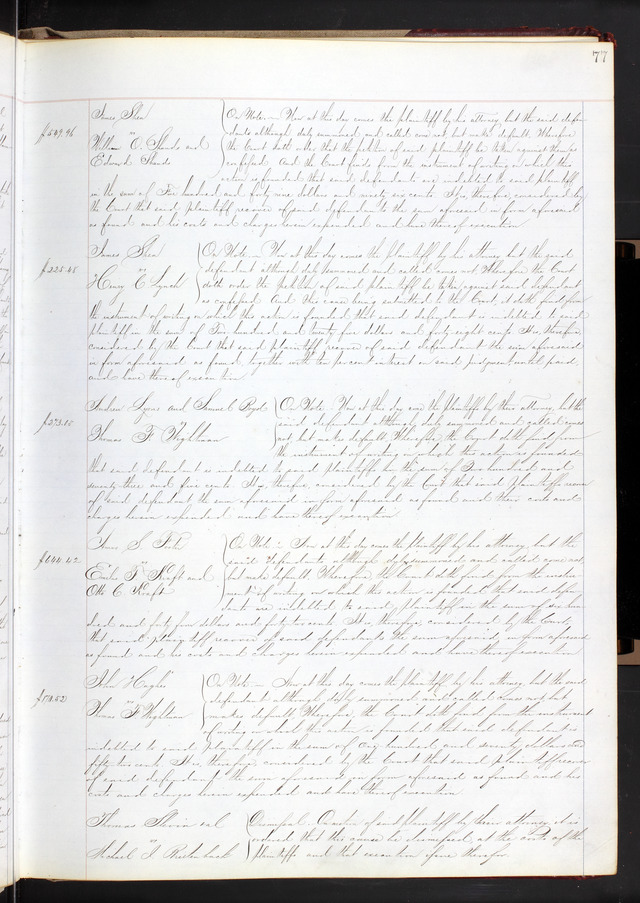 77
James Shea
$549.96
vs
William O. Shands and
Edward Shands
On Note. Now at this day comes the plaintiff by his attorney, but the said defen-
dants although duly summoned and called come not but make default. Wherefore
the Court doth order that the petition of said plaintiff be taken against them as
confessed. And the Court finds from the instrument of writing on which the
action is founded that said defendants are indebted to said plaintiff
in the sum of Five hundred and forty nine dollars and ninety six cents. It is, therefore, considered by
the Court that said plaintiff recover of said defendants the sum aforesaid in form aforesaid
as found and his costs and charges herein expended and have thereof execution
James Shea
$225.48
vs
Henry C Lynch
On Note. Now at this day comes the plaintiff by his attorney, but the said
defendant although duly summoned and called comes not Wherefore the Court
doth order the petition of said plaintiff be taken against said defendant
as confessed And this cause being submitted to the Court, it doth find from
the instrument of writing on which the action is founded that said defendant is indebted to said
plaintiff in the sum of Two hundred and twenty five dollars and forty eight cents It is, therefore,
considered by the Court that said plaintiff recover of said defendant the sum aforesaid
in form aforesaid as found, together with ten per cent interest on said judgment until paid
and have thereof execution
Andrew and Samuel C Boyd
$273.05
vs
Thomas F Wightman
On Note. Now at this day come the plaintiffs by their attorney, but the
said defendant although duly summoned and called comes
not but makes default. Wherefore the Court doth find from
the instrument of writing on which the action is founded
that said defendant is indebted to said plaintiffs in the sum of Two hundred and
seventy three and five cents It is, therefore, considered by the Court that said plaintiffs recover
of said defendant the sum aforesaid in form aforesaid as found and their costs and
charges herein expended and have thereof execution
James S.
$644.42
vs
Emile F Kraft and
Otto C Kraft
On Note. Now at this day comes the plaintiff by his attorney, but the
said defendants although duly summoned and called come not
but make default. Wherefore the Court doth find from the instru-
ment of writing on which this action is founded that said defen-
dants are indebted to said plaintiff in the sum of six hun-
dred and forty four dollars and forty two cents It is, therefore, considered by the Court,
that said plaintiff recover of said defendants the sum aforesaid in form aforesaid
as found and his costs and charges herein expended and have thereof execution
John Hughes
vs
Thomas F Wightman
On Note. Now at this day comes the plaintiff by his attorney, but the said
defendant although duly summoned and called comes not but
makes default. Wherefore, the Court doth find from the instrument
of writing on which the action is founded that said defendant is
indebted to said plaintiff in the sum of hundred and seventy dollars and
fifty two cents It is, therefore, considered by the Court that said plaintiff recover
of said defendant the sum aforesaid in form aforesaid as found and his
costs and charges herein expended and have thereof execution
Thomas et al
vs
Michael J.
Dismissal. On motion of said plaintiffs by their attorney it is
ordered that this cause be dismissed at the costs of the
plaintiffs and that execution issue therefor.